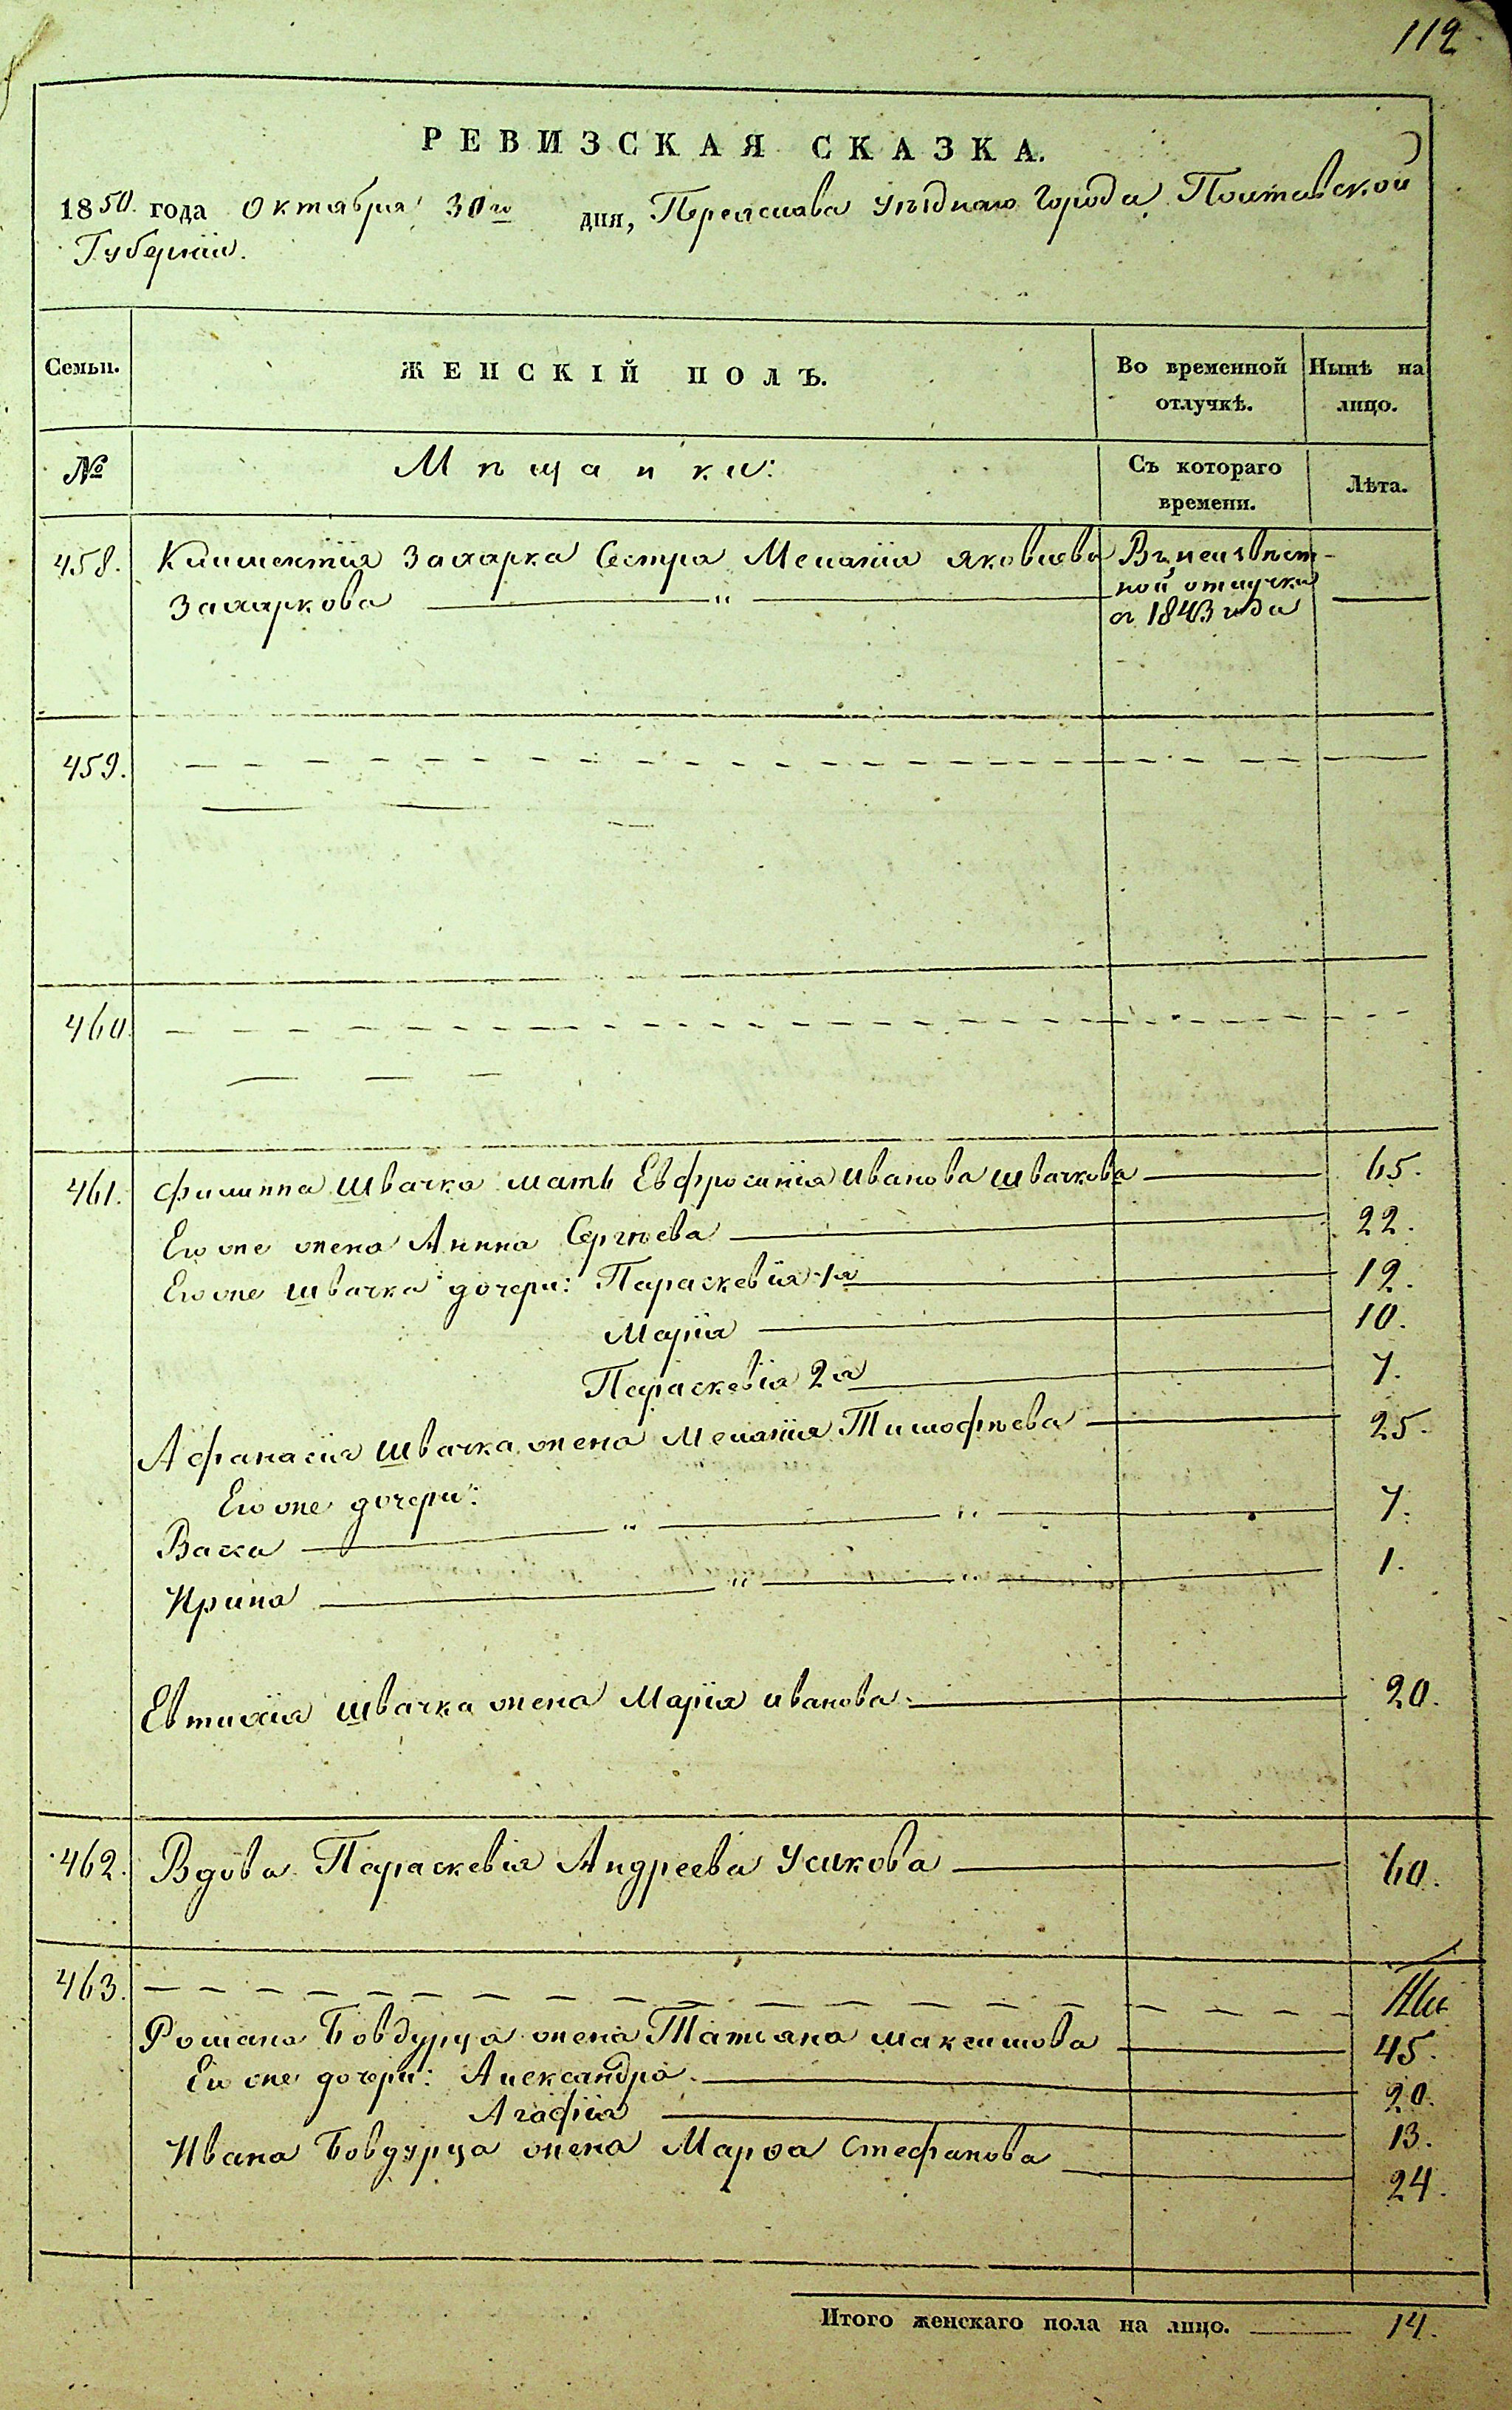 112
РЕВИЗСКАЯ СКАЗКА.
1850 года Октября 30го дня, Переяслава уѣзднаго Города Полтавской
Губерніи.
Семьи. ЖЕНСКІЙ ПОЛЪ. Во временной отлучкѣ. Нынѣ на лицо.
№ Мѣщанки: Съ котораго времени. Лѣта.
458. Климентія Захарка Сестра Меланія Яковлева Въ неизвѣст-
Захаркова " ной отлучки
съ 1843 года
459.
460.
461. Филиппа Швачка мать Евфросинія Иванова Швачкова 65.
Его же жена Анна Сергѣева 22.
Его же Швачка дочери: Параскевія 1я 12.
Марія 10.
Параскевія 2я 7.
Афанасія Швачка жена Меланія Тимофѣева 25.
Его же дочери:
Васса " " 7.
Ирина " " 1.
Евтихія Швачка жена Марія Иванова 20.
462. Вдова Параскевія Андреева Усикова 60.
463.
Романа Бовдурца жена Татіана Максимова 45.
Его же дочери: Александра 20.
Агафія 13.
Ивана Бовдурца жена Марѳа Стефанова 24.
Итого женскаго пола на лицо. 14.